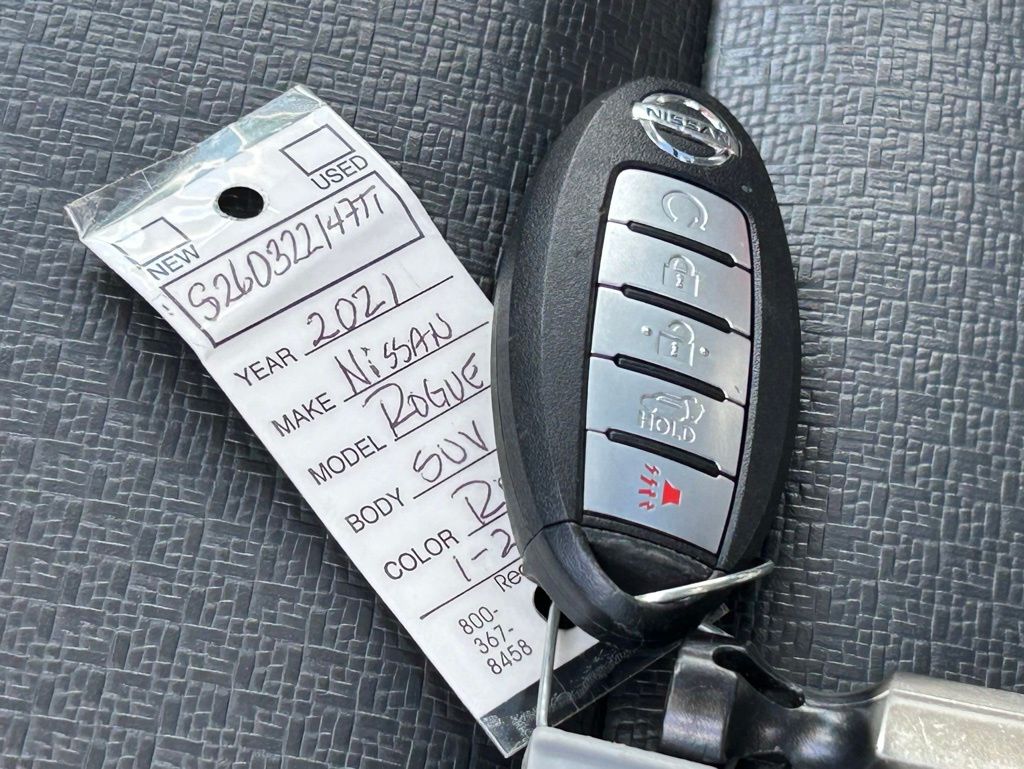 USED
NEW
S260322147TT
YEAR 2021
MAKE NISSAN
MODEL ROGUE
BODY SUV
COLOR
1-2
800-
367-
8458
NISSAN
HOLD